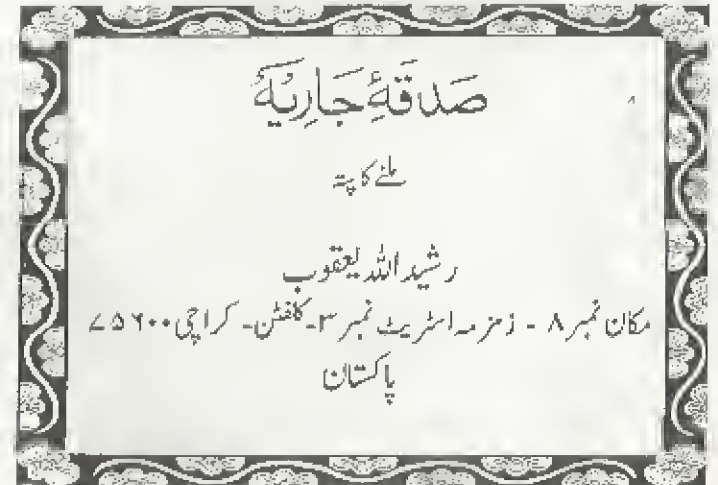 صَدقَۂِ جَارِیَہْ
ملنے کا پتہ
رشید اللہ یعقوب
مکان نمبر ۸ - زمزمہ اسٹریٹ نمبر ۳ - کلفٹن - کراچی ۷۵۶۰۰
پاکستان